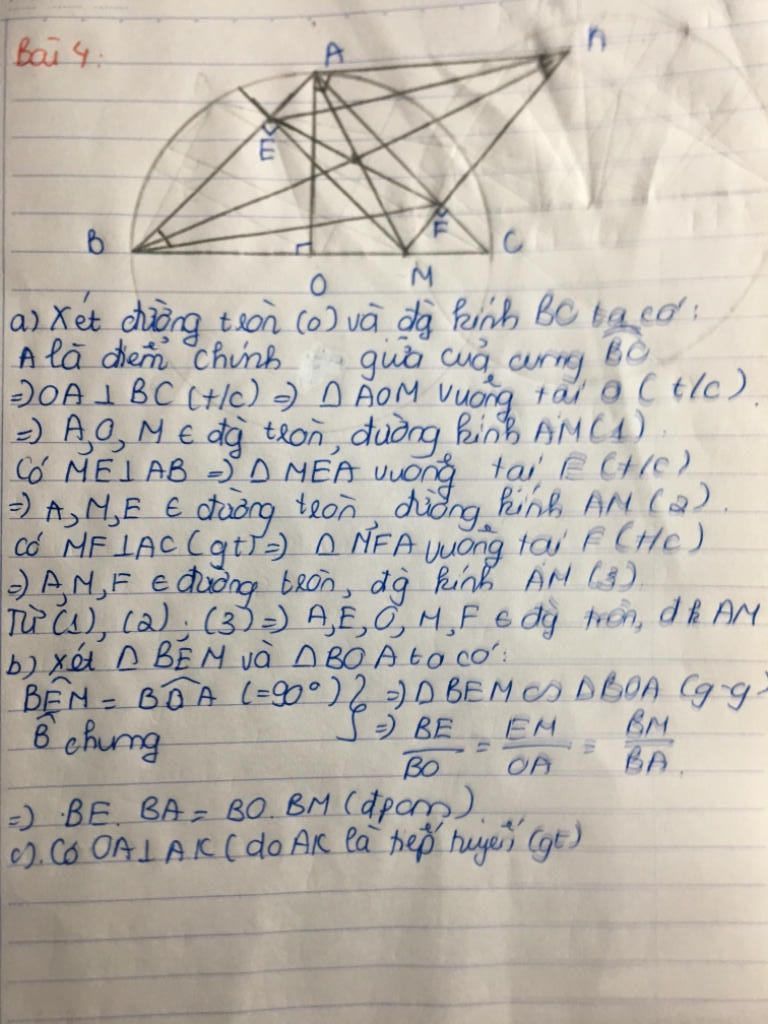 Bài 4:
A
K
E
B
F
C
O
M
a) Xét đường tròn (O) và đg kính BC ta có:
A là điểm chính giữa của cung BC
=> OA ⊥ BC (t/c) => Δ AOM vuông tại O (t/c)
=> A, O, M ∈ đg tròn, đường kính AM (1).
Có ME ⊥ AB => Δ MEA vuông tại E (t/c)
=> A, M, E ∈ đường tròn, đường kính AM (2).
Có MF ⊥ AC (gt) => Δ MFA vuông tại F (t/c)
=> A, M, F ∈ đường tròn, đg kính AM (3).
Từ (1), (2), (3) => A, E, O, M, F ∈ đg tròn, đk AM
b) Xét Δ BEM và Δ BOA ta có:
BÊM = BÔA (=90°) } => Δ BEM ∽ Δ BOA (g-g)
B̂ chung => BE/BO = EM/OA = BM/BA
=> BE. BA = BO. BM (đpcm).
c). Có OA ⊥ AK (do AK là tiếp tuyến (gt)